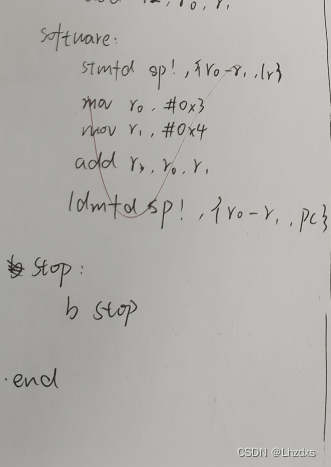 add r2, r0, r1
software:
stmfd sp!, {r0-r1, lr}
mov r0, #0x3
mov r1, #0x4
add r3, r0, r1
ldmfd sp!, {r0-r1, pc}
stop:
b stop
.end
CSDN @Lhzdxs